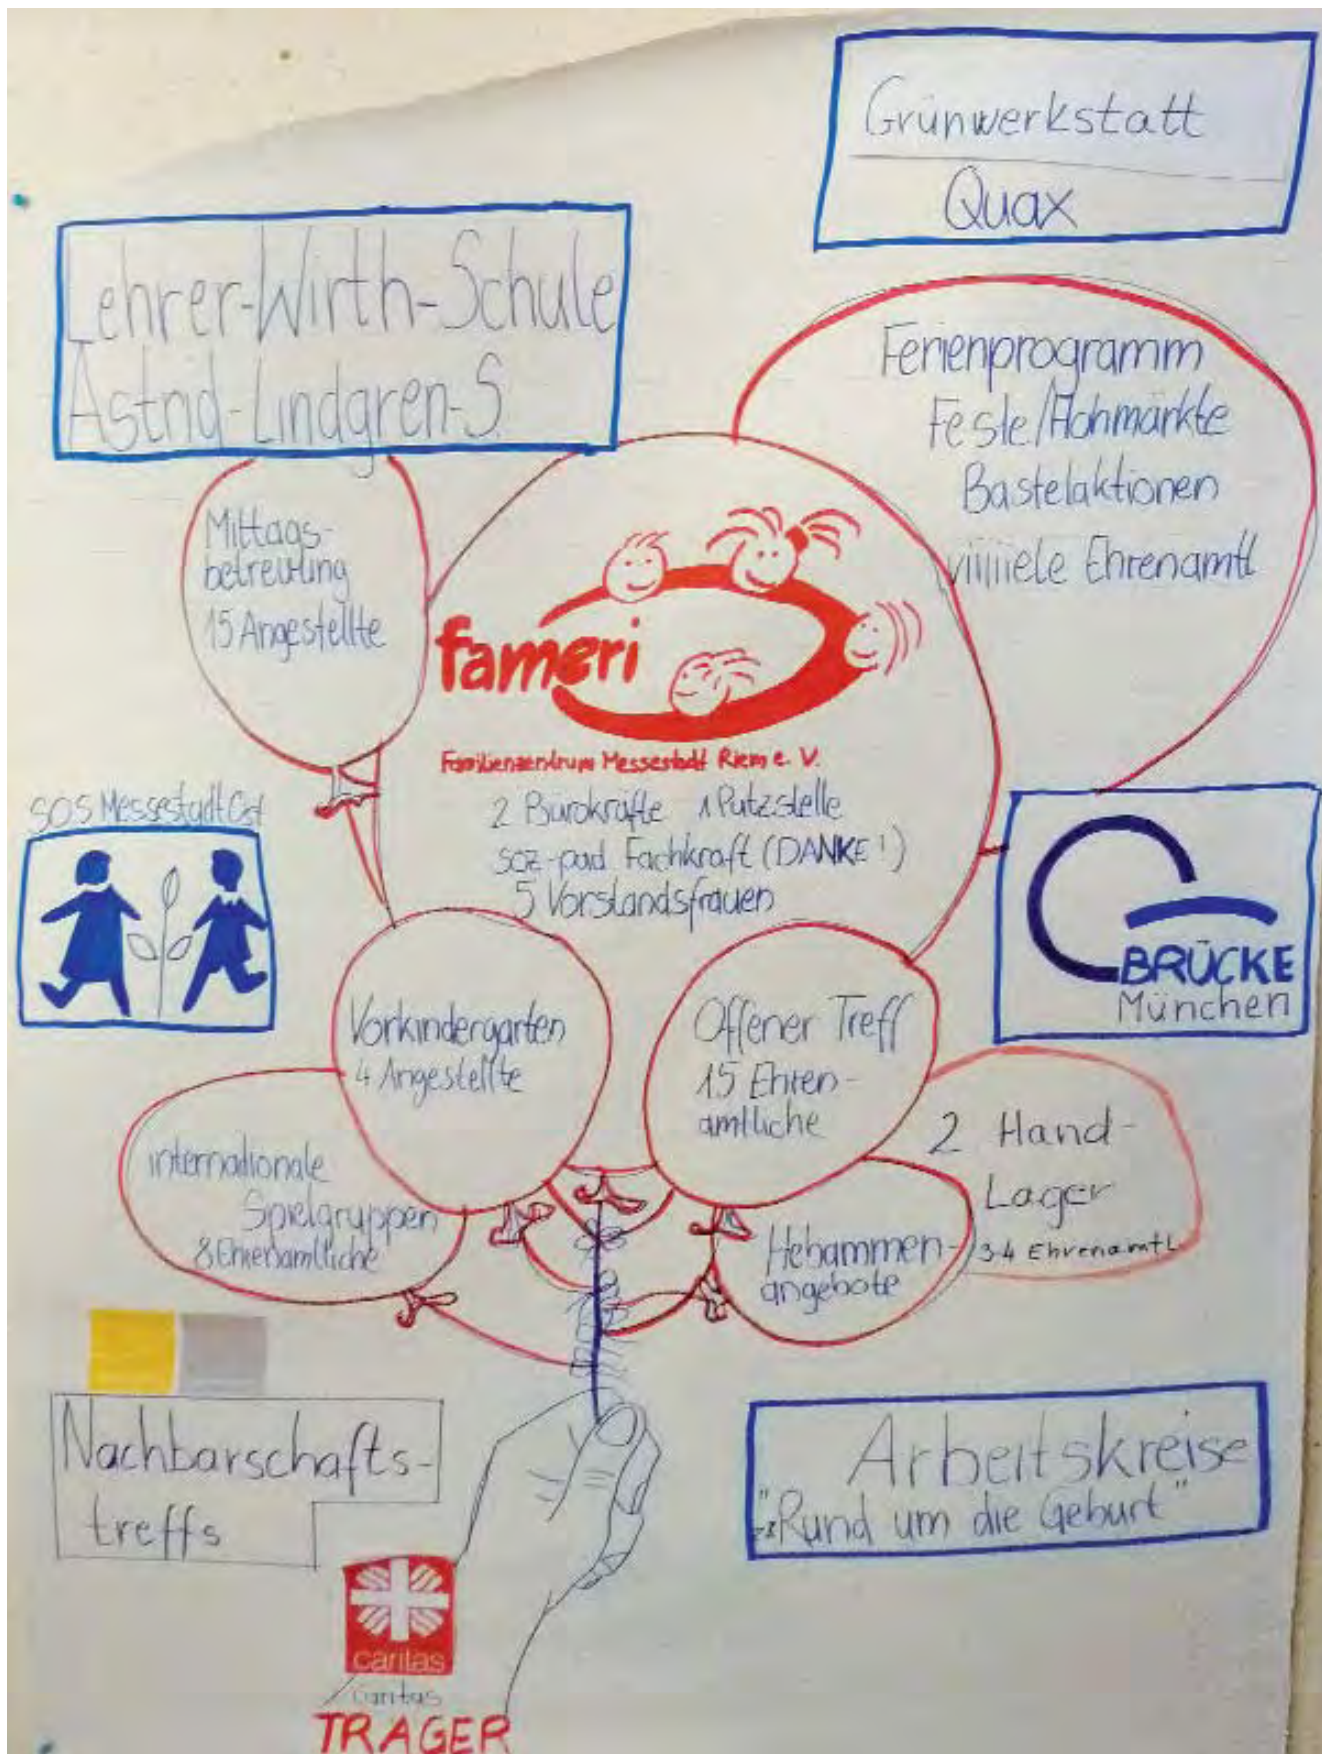 Grünwerkstatt
Quax
Lehrer-Wirth-Schule
Astrid-Lindgren-S.
Ferienprogramm
Feste/Flohmärkte
Bastelaktionen
viiiiiele Ehrenamtl
Mittags-
betreuung
15 Angestellte
fameri
Familienzentrum Messestadt Riem e. V.
2 Bürokräfte 1 Putzstelle
soz-päd Fachkraft (DANKE!)
5 Vorstandsfrauen
SOS Messestadt Ost
BRÜCKE
München
Vorkindergarten
4 Angestellte
Offener Treff
15 Ehren-
amtliche
internationale
Spielgruppen
8 Ehrenamtliche
2 Hand-
Lager
3-4 Ehrenamtl.
Hebammen-
angebote
Nachbarschafts-
treffs
Arbeitskreise
"Rund um die Geburt"
caritas
caritas
TRÄGER